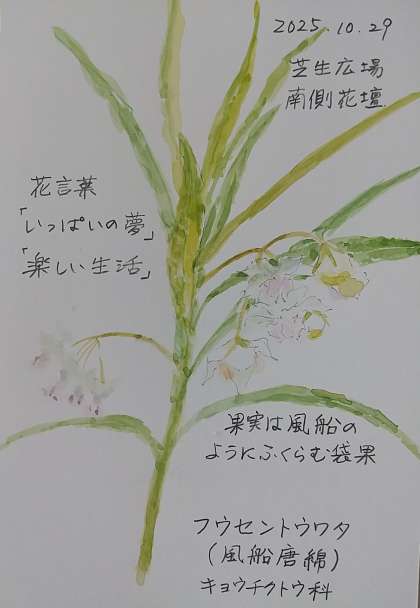 2025.10.29
芝生広場
南側花壇
花言葉
「いっぱいの夢」
「楽しい生活」
果実は風船の
ようにふくらむ袋果
フウセントウワタ
(風船唐綿)
キョウチクトウ科